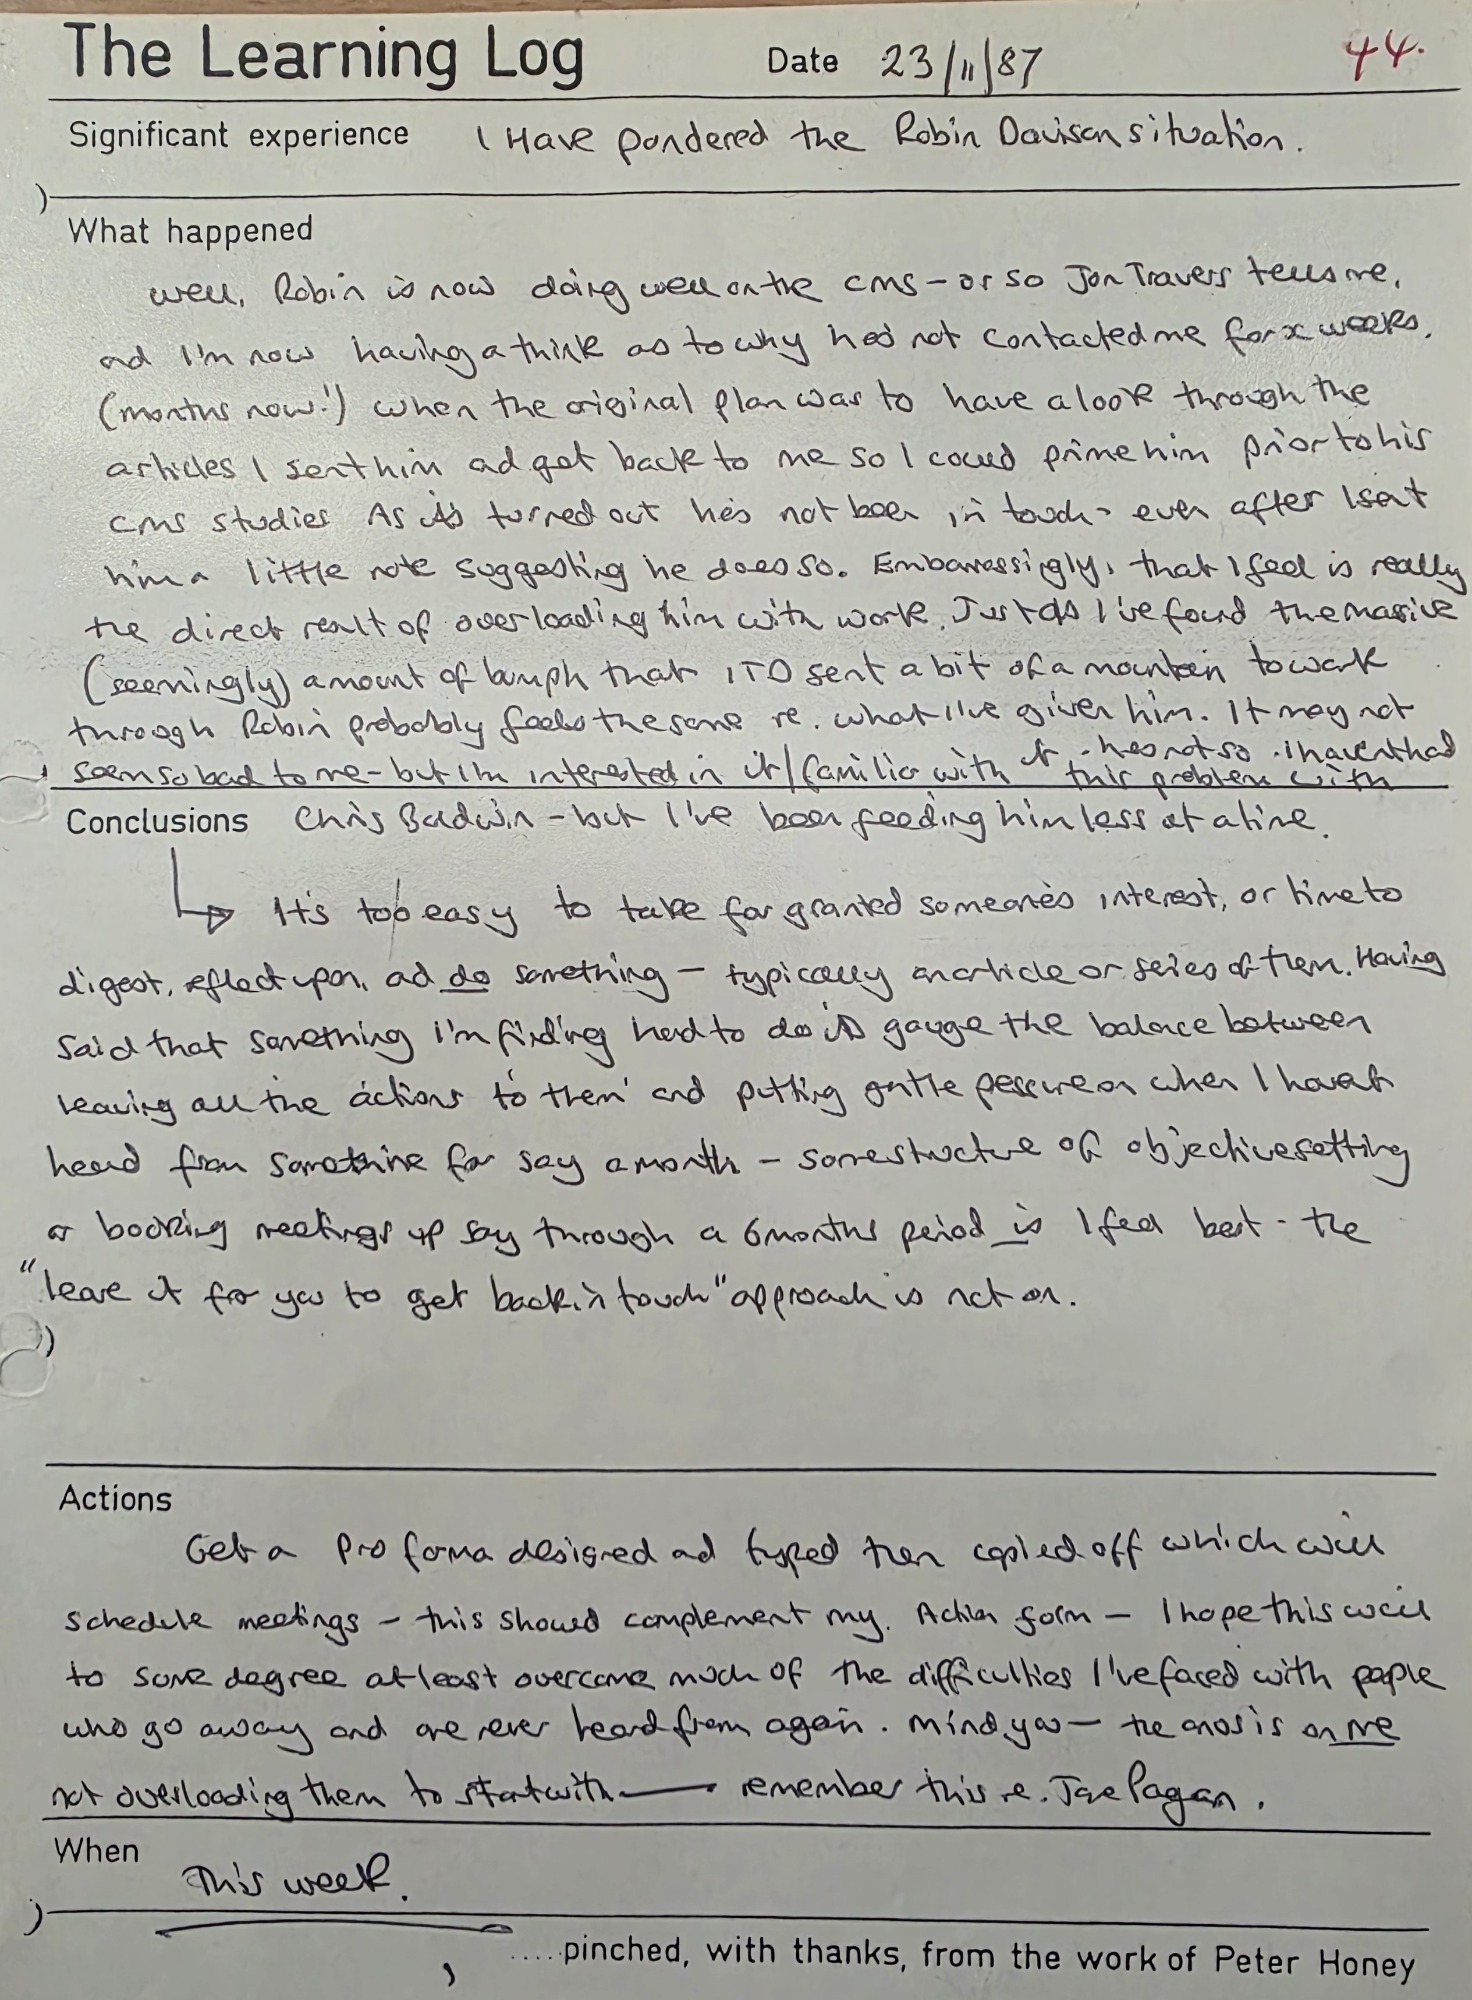 The Learning Log Date 23/11/87 44.
Significant experience I Have pondered the Robin Davison situation.
What happened
Well, Robin is now doing well on the CMS - or so Jon Travers tells me,
and I'm now having a think as to why he's not contacted me for x weeks,
(months now!) when the original plan was to have a look through the
articles I sent him and get back to me so I could prime him prior to his
CMS studies As it's turned out he's not been in touch - even after I sent
him a little note suggesting he does so. Embarrassingly, that I feel is really
the direct result of overloading him with work. Just as I've found the massive
(seemingly) amount of bumph that ITD sent a bit of a mountain to work
through Robin probably feels the same re. what I've given him. It may not
seem so bad to me - but I'm interested in it/familiar with it - he's not so. I haven't had
this problem with
Conclusions Chris Baldwin - but I've been feeding him less at a time.
It's too easy to take for granted someone's interest, or time to
digest, reflect upon, and do something - typically an article or series of them. Having
said that something I'm finding hard to do is gauge the balance between
leaving all the actions 'to them' and putting gentle pressure on when I haven't
heard from for say a month - some structure of objective setting
or booking meetings up say through a 6 months period is I feel best - the
"leave it for you to get back in touch" approach is not on.
Actions
Get a pro forma designed and typed then copied off which will
schedule meetings - this should complement my. Action form - I hope this will
to some degree at least overcome much of the difficulties I've faced with people
who go away and are never heard from again. Mind you - the onus is on me
not overloading them to start with — remember this re. Jae Pagan.
When This week.
.....pinched, with thanks, from the work of Peter Honey